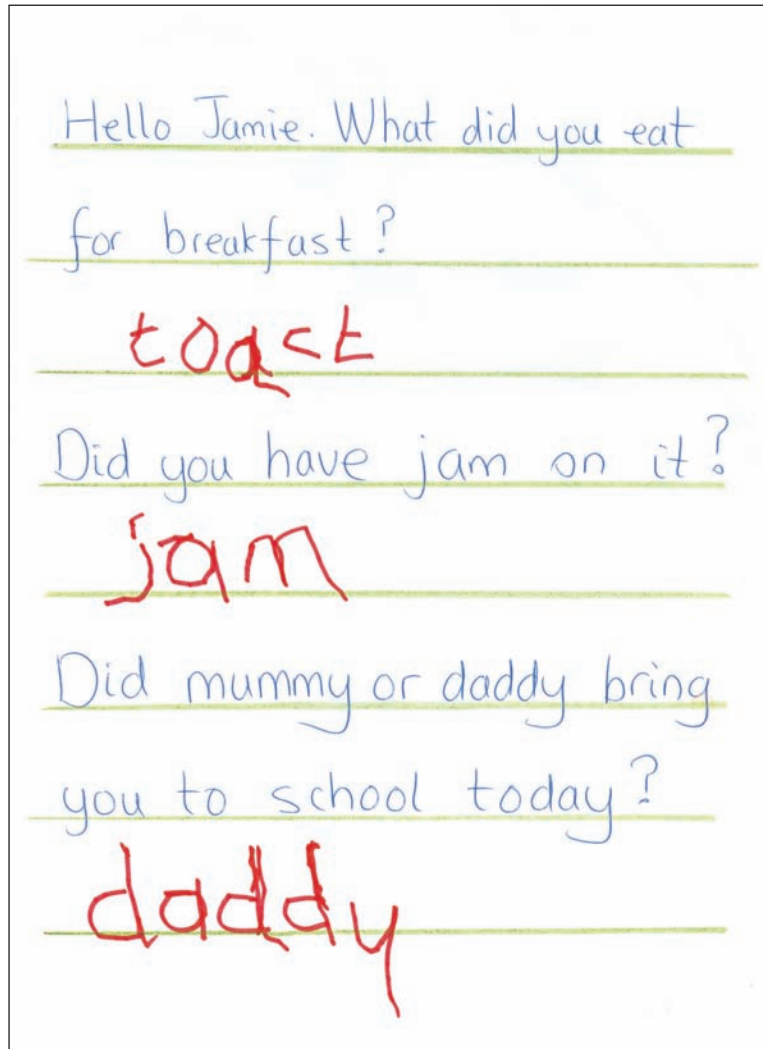 Hello Jamie. What did you eat
for breakfast?
toact
Did you have jam on it?
jam
Did mummy or daddy bring
you to school today?
daddy